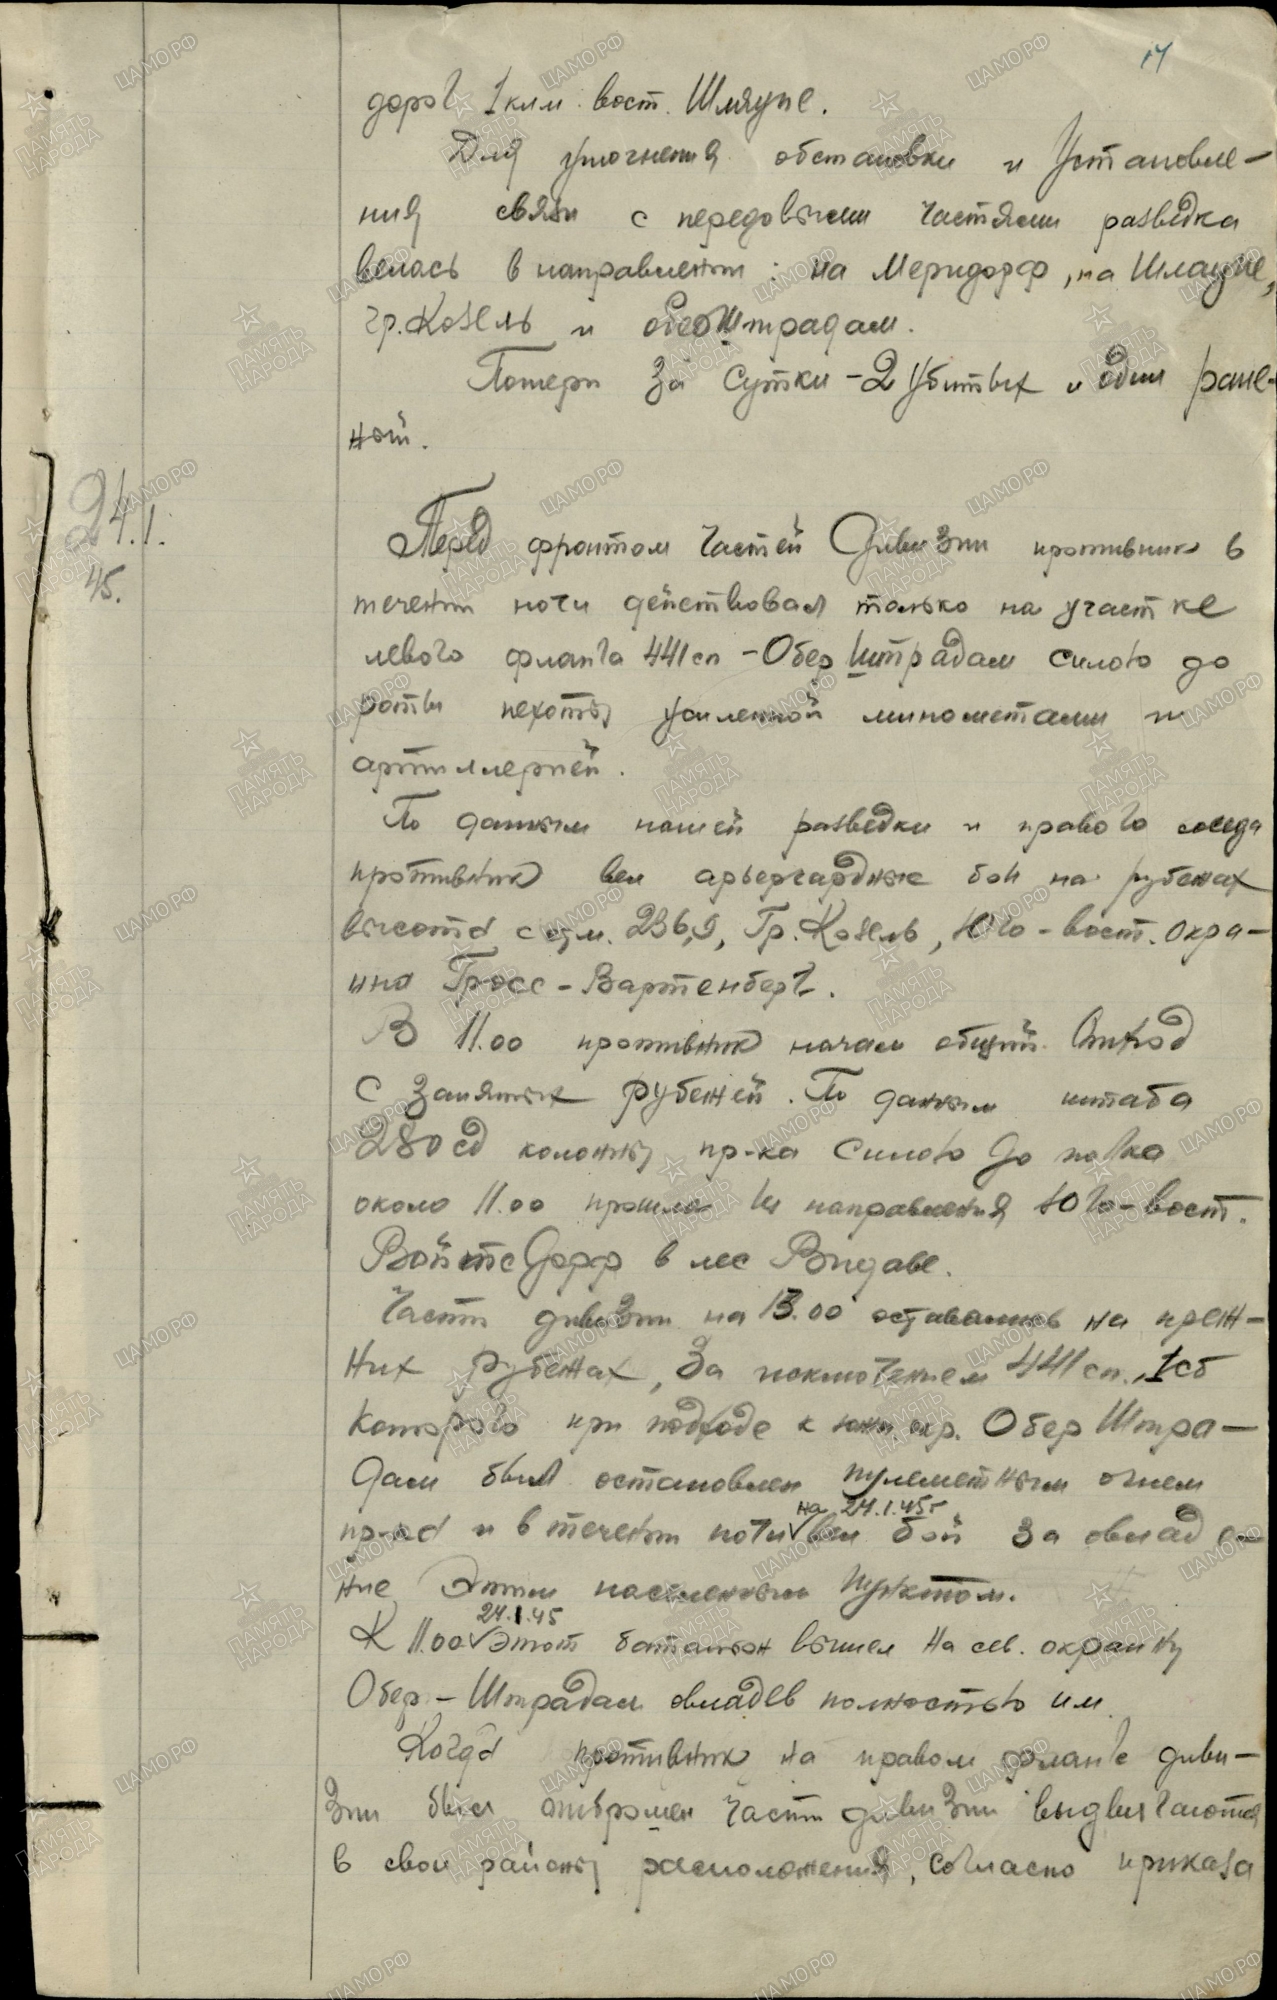 17
дорог 1 клм. вост. Шляупе.
Для уточнения обстановки и установле-
ния связи с передовыми частями разведка
велась в направлении: на Меридорф, на Шлаупе,
гр. Козель и обер Штрадам.
Потери за сутки - 2 убитых и один ране-
ный.
24.1.
45.
Перед фронтом частей дивизии противник в
течении ночи действовал только на участке
левого фланга 441 сп - Обер Штрадам силою до
роты пехоты усиленной минометами и
артиллерией.
По данным нашей разведки и правого соседа
противник вел арьергардные бои на рубежах
высота с отм. 236,9, Гр. Козель, Юго-вост. окра-
ина Гросс-Вартенберг.
В 11.00 противник начал общий отход
с занятых рубежей. По данным штаба
280 сд колонны пр-ка силою до полка
около 11.00 прошла из направления юго-вост.
Войтсдорф в лес Видаве.
Части дивизии на 13.00 оставались на преж-
них рубежах, за исключением 441 сп., 1 сб
которого при подходе к южн. окр. Обер Штра-
дам был остановлен пулеметным огнем
на 24.1.45г
пр-ка и в течении ночи вел бой за овладе-
ние этим населенным пунктом.
24.1.45
К 11.00 этот батальон вышел на сев. окраину
Обер-Штрадам овладев полностью им.
Когда противник на правом фланге диви-
зии был отброшен части дивизии выдвигаются
в свои районы расположения, согласно приказа
ЦАМО.РФ
ПАМЯТЬ НАРОДА